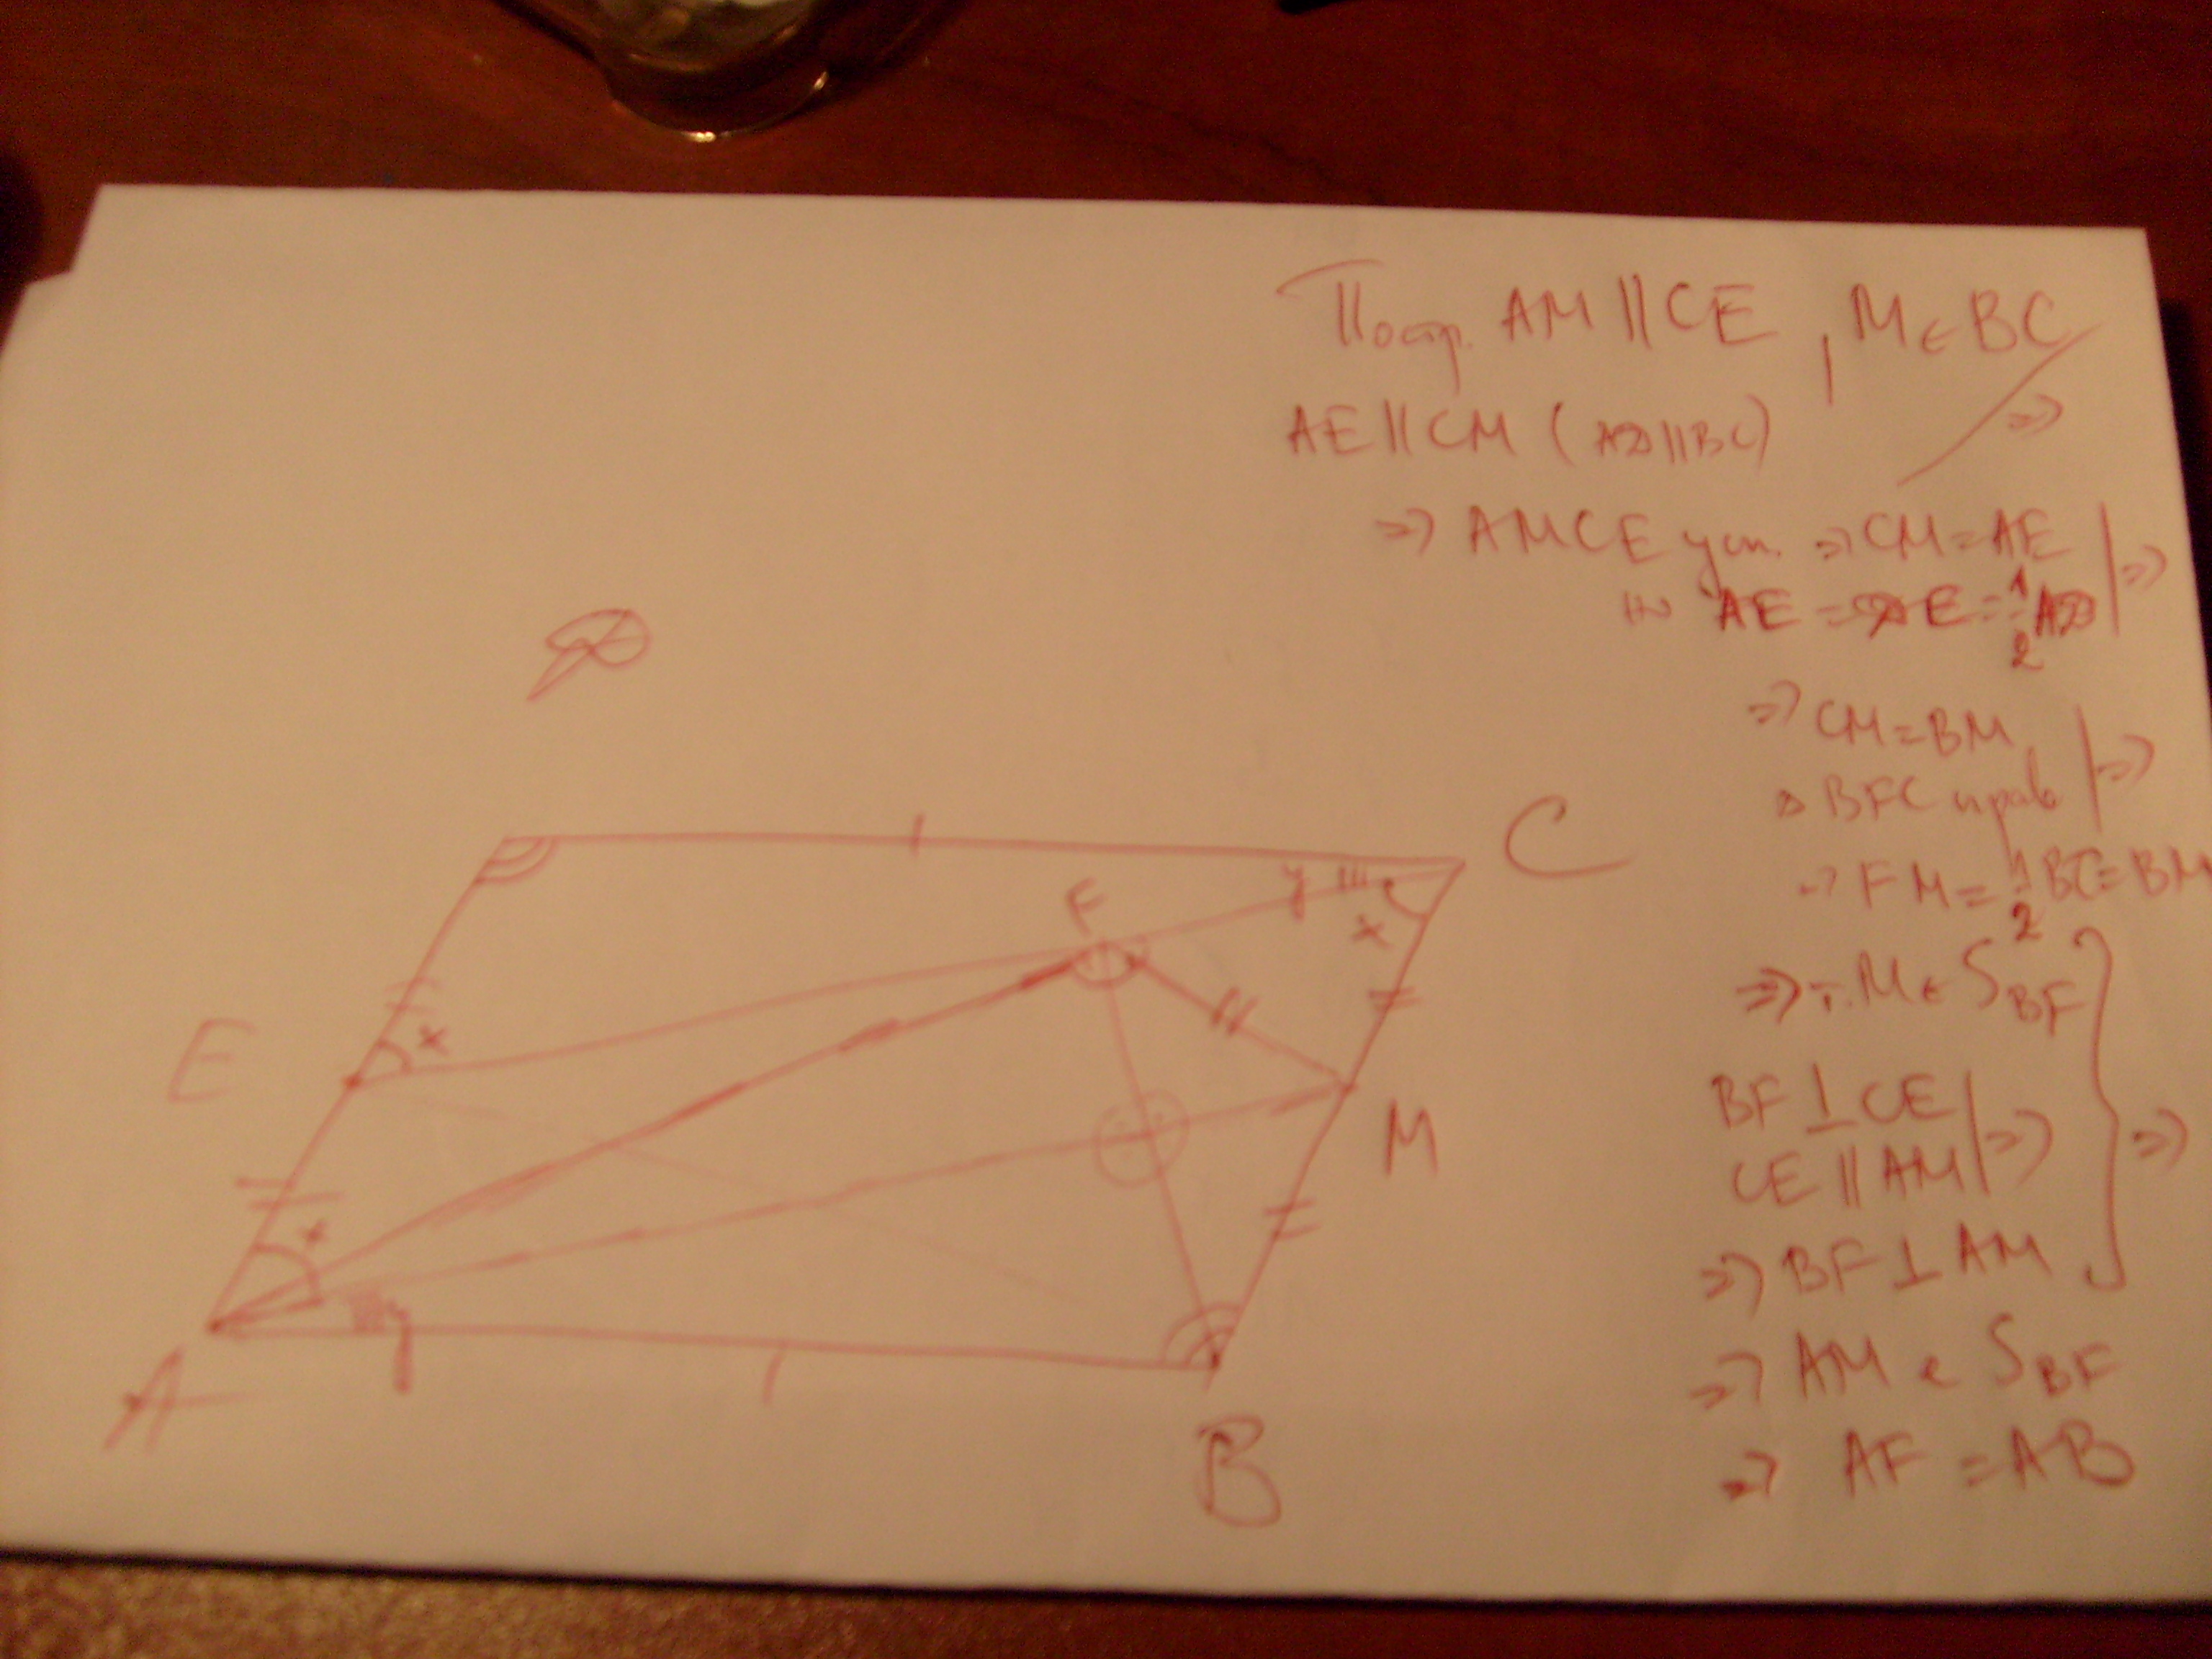 Постр. AM || CE , M ∈ BC
AE || CM ( AD || BC) =>
=> AMCE усп. => CM = AE
но AE = DE = 1/2 AD | =>
=> CM = BM
△ BFC прав | =>
-> FM = 1/2 BC = BM
=> т. M ∈ S BF
BF ⊥ CE
CE || AM | =>
=> BF ⊥ AM } =>
=> AM e S BF
=> AF = AB
D
C
F
y
x
E
x
M
x
y
A
B